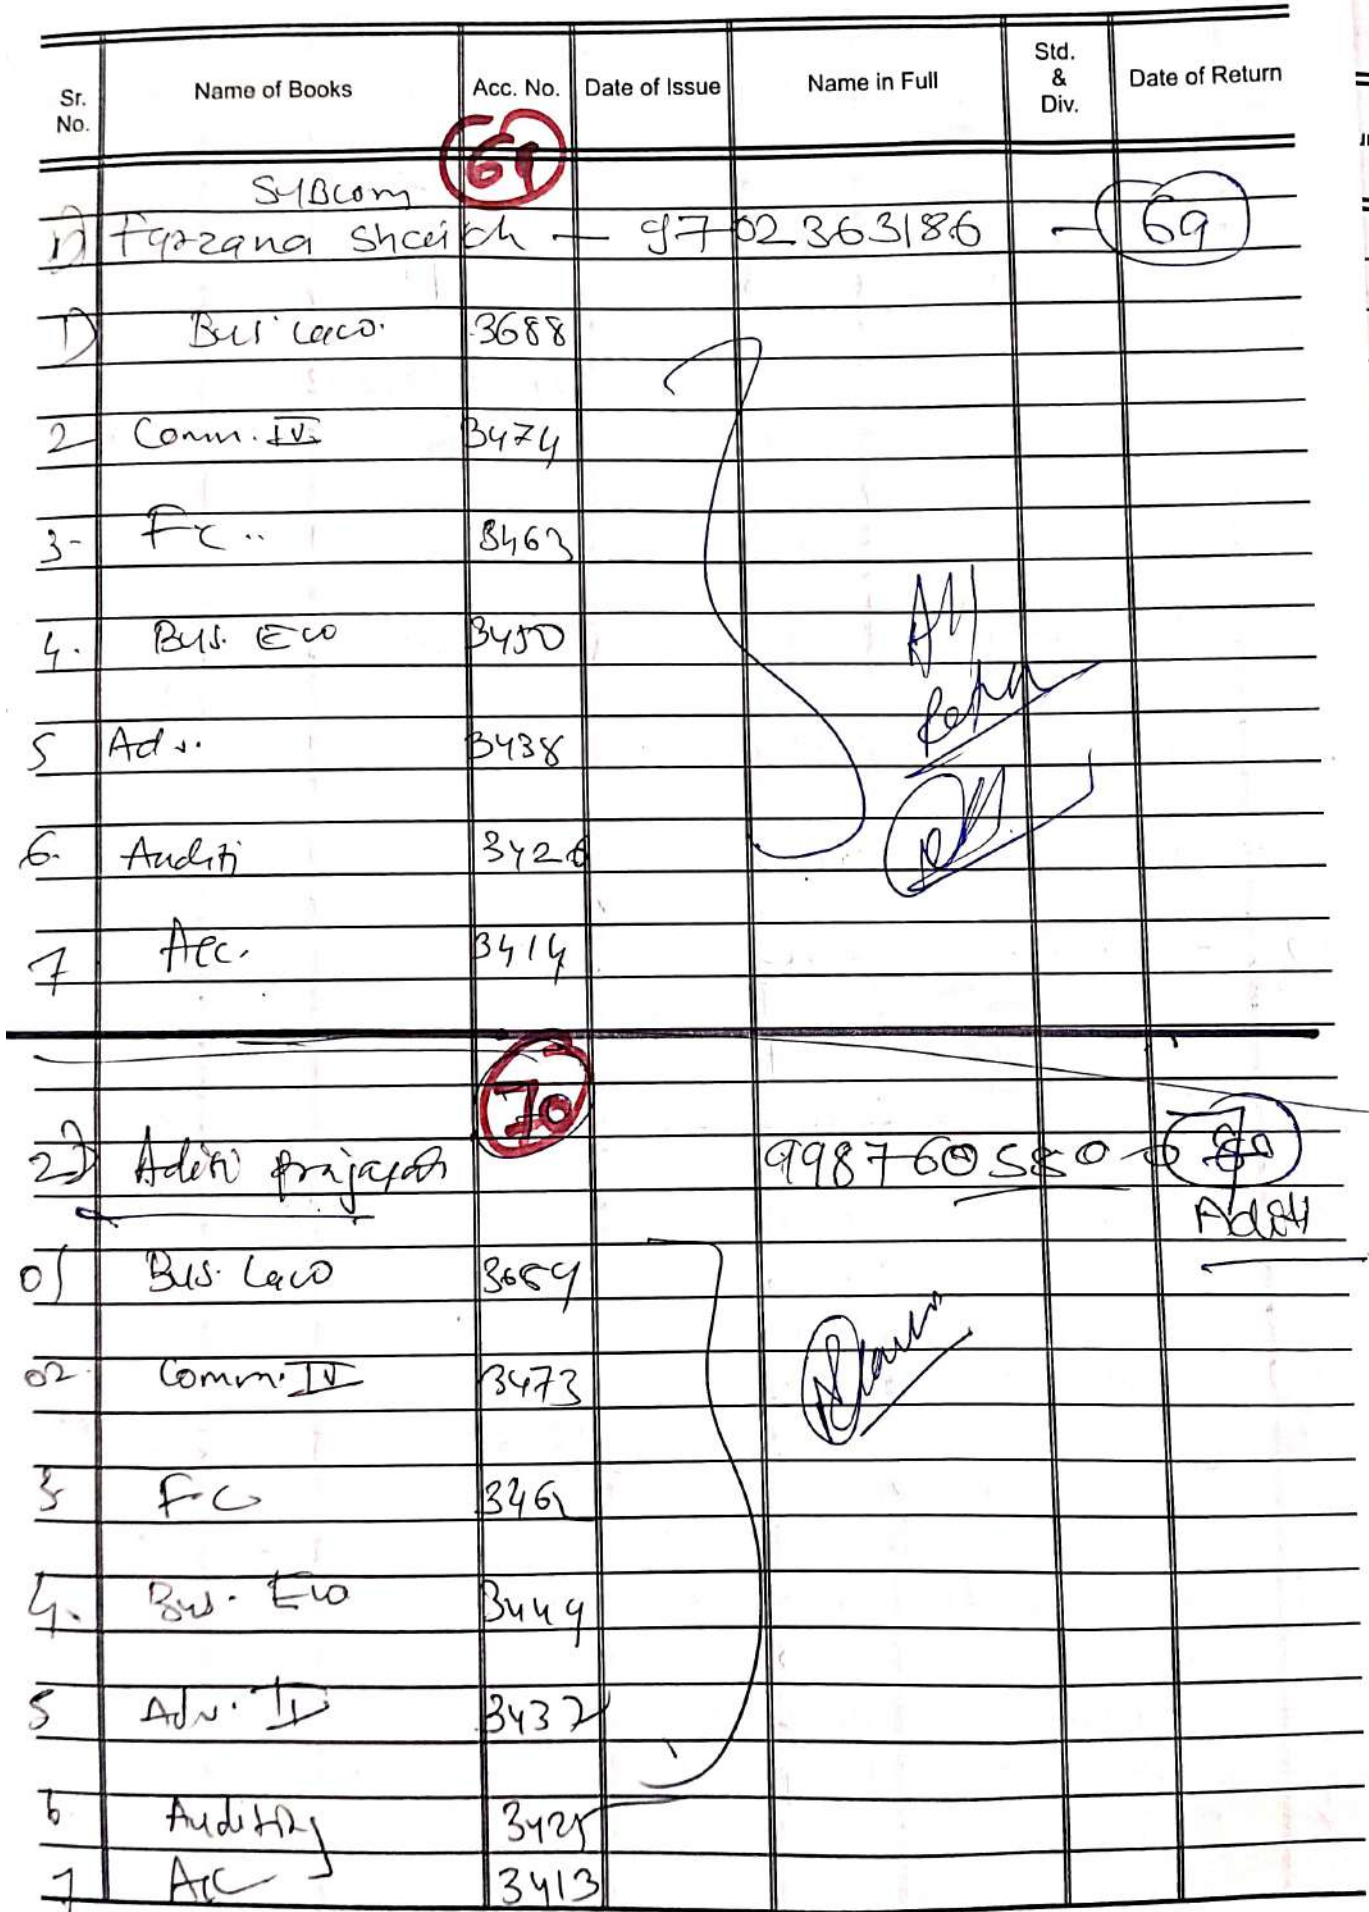 Sr. No. Name of Books Acc. No. Date of Issue Name in Full Std. & Div. Date of Return
69
SYBcom
1) Farzana Shaikh — 9702363186 — 69
1) Bus Law. 3688
2 Comm. IV. 3474
3- FC .. 3463
4. Bus. Eco 3450
All
5 Adv. 3438
6. Auditi 3426
7 Acc. 3414
70
2) Aditi Prajapati 9987600580 - 70
Aditi
01 Bus. Law
02. Comm. IV 3473
3 F.C 3462
4. Bus. Eco 3449
5 Adv. IV 3437
6 Auditing 3425
7 Acc 3413